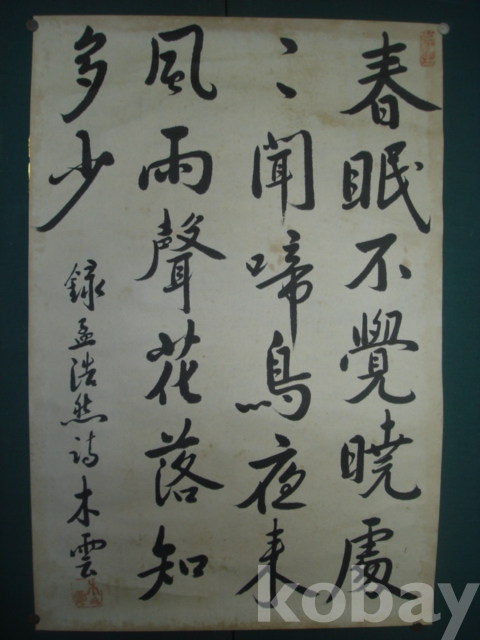 春眠不覺曉處
〻聞啼鳥夜来
風雨聲花落知
多少
録孟浩然詩 木雲
kobay